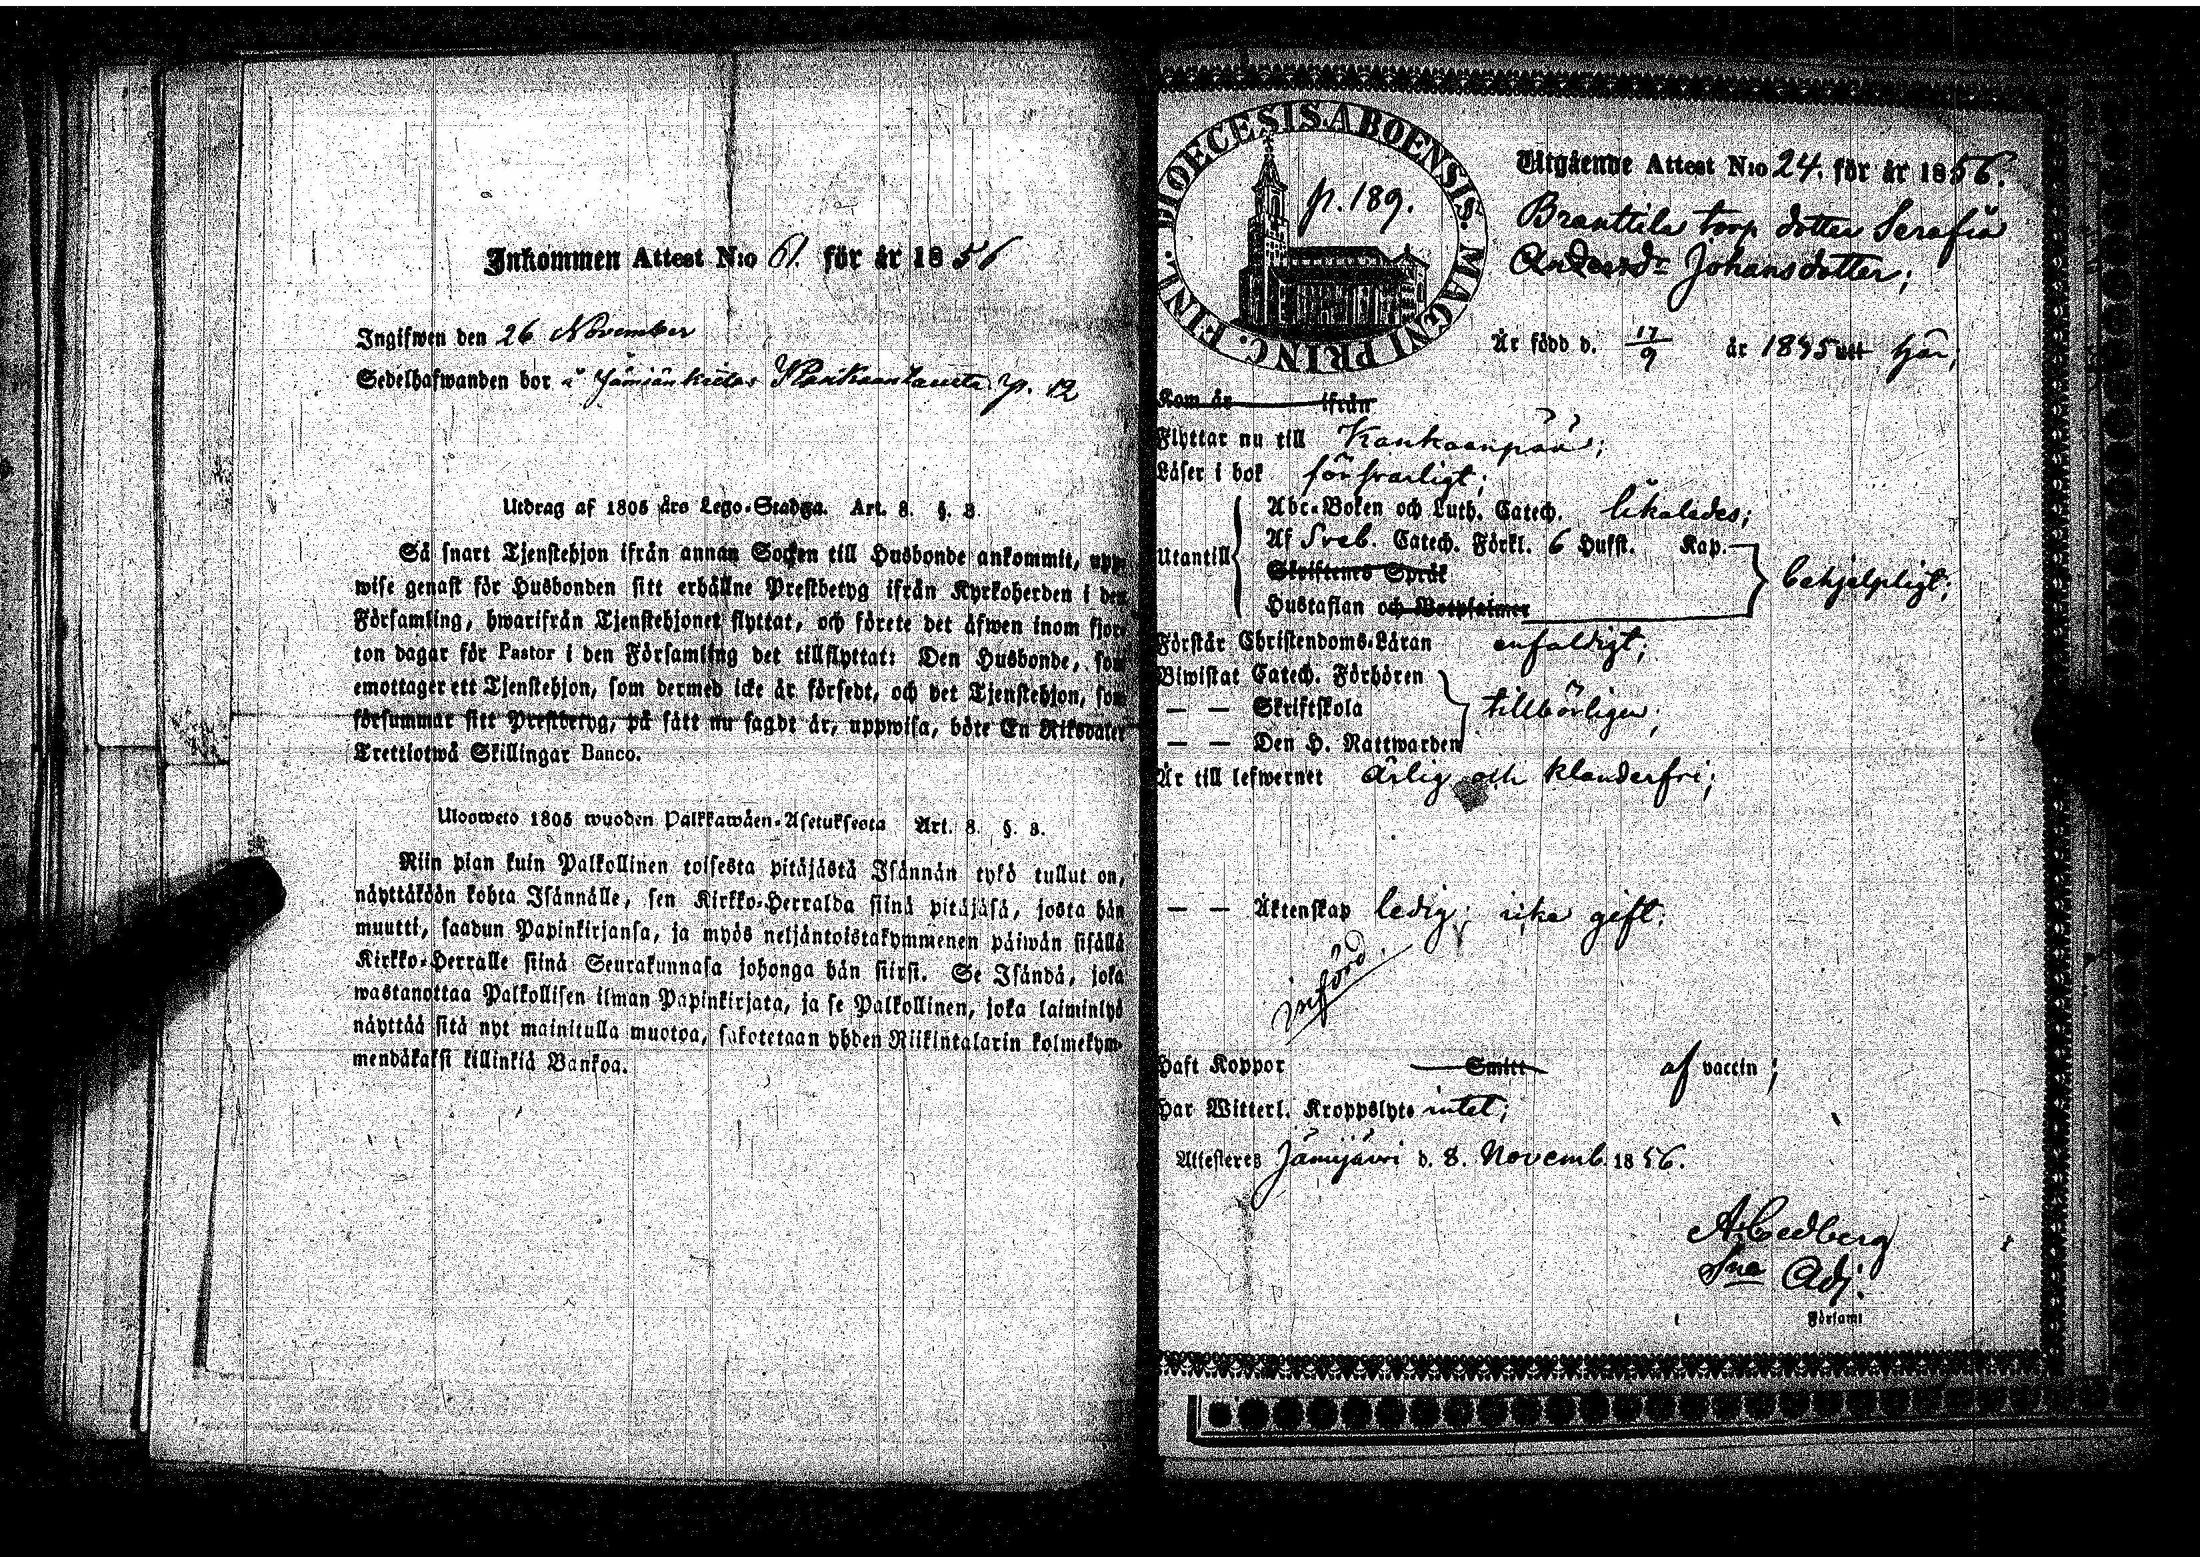 Inkommen Attest N:o 61. för år 1856
Ingifwen den 26 November
Sedelhafwanden bor i Jämiänkeidas p. 12
Utdrag af 1805 års Lego-Stadga. Art. 8. §. 3
Så snart Tjenstehjon ifrån annan Socken till Husbonde ankommit, upp-
wise genast för Husbonden sitt erhållne Prestbetyg ifrån Kyrkoherden i den
Församling, hwarifrån Tjenstehjonet flyttat, och förete det äfwen inom fjor-
ton dagar för Pastor i den Församling det tillflyttat: Den Husbonde, som
emottager ett Tjenstehjon, som dermed icke är försedt, och det Tjenstehjon, som
försummar sitt Prestbetyg, på sätt nu sagdt är, uppwisa, böte En Riksdaler
Trettiotwå Skillingar Banco.
Ulosweto 1805 wuoden Palkkawäen-Asetuksesta Art. 8. §. 3.
Niin pian kuin Palkollinen toisesta pitäjästä Isännän tykö tullut on,
näyttäköön kohta Isännälle, sen Kirkko-Herralda siinä pitäjäsä, josta hän
muutti, saadun Papinkirjansa, ja myös neljäntoistakymmenen päiwän sisällä
Kirkko-Herralle siinä Seurakunnasa johonga hän siirsi. Se Isändä, joka
wastanottaa Palkollisen ilman Papinkirjata, ja se Palkollinen, joka laiminlyö
näyttää sitä nyt mainitulla muotoa, sakotetaan yhden Riikintalarin kolmekym-
mendäkaksi killinkiä Bankoa.
DIOECESIS ABOENSIS. MAGNI PRINC. FINL.
p. 189.
Utgående Attest N:o 24. för år 1856.
Branttila torp dotter Serafia
Andersdr Johansdotter;
Är född d. 17/9 år 1835 här;
Kom år ifrån
Flyttar nu till Kankaanpää;
Läser i bok försvarligt;
Utantill
Abc-Boken och Luth. Catech. likaledes;
Af Sveb. Catech. Förkl. 6 Hufst. Kap.
Skriftenes Språk
Hustaflan och Botpsalmer
behjelpligt;
Förstår Christendoms-Läran enfaldigt;
Biwistat Catech. Förhören
— — Skriftskola tillbörligen;
— — Den H. Nattwarden
Är till lefwernet ärlig och klanderfri;
— — Äktenskap ledig; icke gift.
införd.
Haft Koppor Smitt af vaccin;
Har Witterl. Kroppslyte intet;
Attesteres Jämijärvi d. 8. Novemb. 1856.
A. Cedberg
Sne Adj.
i Församl